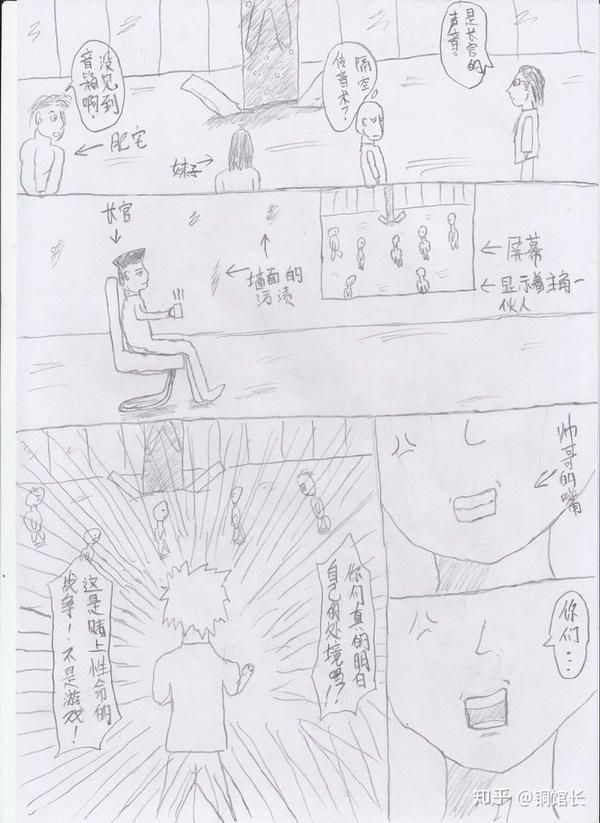 没见到
音箱啊！
肥宅
妹子
隔空
传音术？
是长官的
声音！
长官
墙面的
污渍
屏幕
显示着主角一
伙人
帅哥的嘴
你们...
你们真的明白
自己的处境吗！？
这是赌上性命的
战争！不是游戏！
知乎 @铜馆长